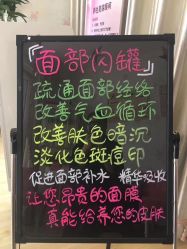 「面部闪罐」
疏通面部经络
改善气血循环
改善肤色暗沉
淡化色斑痘印
促进面部补水 精华吸收
让您昂贵的面膜
真能给养您的皮肤